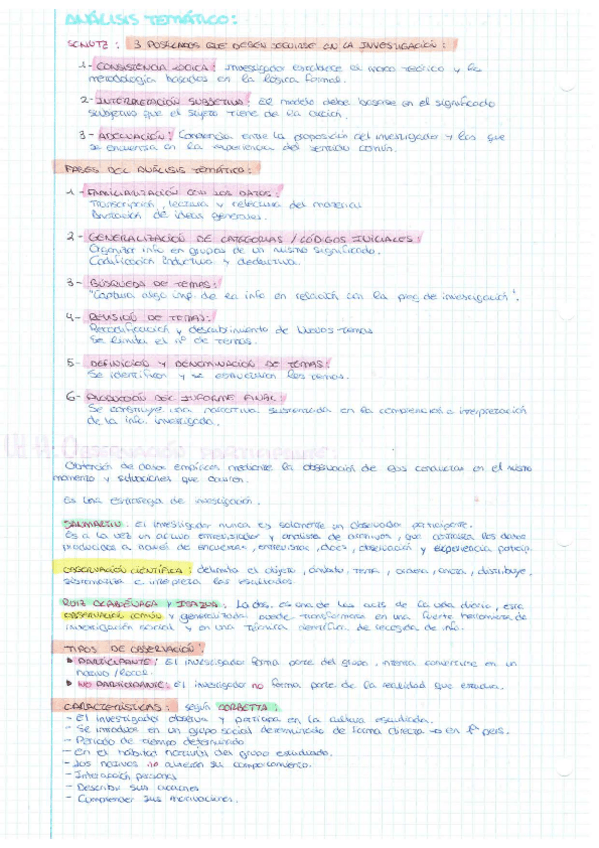 ANÁLISIS TEMÁTICO:
SCHUTZ: 3 POSTULADOS QUE DEBEN SEGUIRSE EN LA INVESTIGACIÓN:
1- CONSISTENCIA LÓGICA: Investigador establece el marco teórico y la
metodología basados en la lógica formal.
2- INTERPRETACIÓN SUBJETIVA: El modelo debe basarse en el significado
subjetivo que el sujeto tiene de la acción.
3- ADECUACIÓN: Coherencia entre la proposición del investigador y las que
se encuentra en la experiencia del sentido común.
FASES DEL ANÁLISIS TEMÁTICO:
1-FAMILIARIZACIÓN CON LOS DATOS:
Transcripción, lectura y relectura del material
Anotación de ideas generales.
2- GENERALIZACIÓN DE CATEGORÍAS / CÓDIGOS INICIALES:
Organizar info en grupos de un mismo significado.
Codificación inductiva y deductiva.
3- BÚSQUEDA DE TEMAS:
"Captura algo imp. de la info en relación con la preg de investigación".
4- REVISIÓN DE TEMAS:
Recodificación y descubrimiento de nuevos temas
Se limita el nº de temas.
5- DEFINICIÓN Y DENOMINACIÓN DE TEMAS:
Se identifican y se estructuran los temas.
6- PRODUCCIÓN DEL INFORME FINAL:
Se construye una narrativa sustentada en la comprensión e interpretación
de la info. investigada.
OBSERVACIÓN PARTICIPANTE:
Obtención de datos empíricos mediante la observación de las conductas en el mismo
momento y situaciones que ocurren.
Es una estrategia de investigación.
El investigador nunca es solamente un observador participante.
Es a la vez un activo entrevistador y analista de archivos, que contrasta los datos
producidos a través de encuestas, entrevistas, docs, observación y experiencia particip.
OBSERVACIÓN CIENTÍFICA: delimita el objeto, ámbito, tema, ordena, anota, distribuye,
sistematiza e interpreta los resultados
RUIZ OLABUÉNAGA E ISPIZUA: La obs. es una de las acts de la vida diaria, esta
OBSERVACIÓN COMÚN y generalizada puede transformarse en una fuente herramienta de
investigación social y en una técnica científica de recogida de info.
TIPOS DE OBSERVACIÓN:
PARTICIPANTE: El investigador forma parte del grupo, intenta convertirse en un
nativo/local.
NO PARTICIPANTE: El investigador no forma parte de la realidad que estudia.
CARACTERÍSTICAS: según CORBETTA:
- El investigador observa y participa en la cultura estudiada.
- Se introduce en un grupo social determinado de forma directa → en 1ª pers.
- Periodo de tiempo determinado
- En el hábitat natural del grupo estudiado.
- Los nativos no alteran su comportamiento.
- Interacción personal
- Describir sus acciones
- Comprender sus motivaciones.